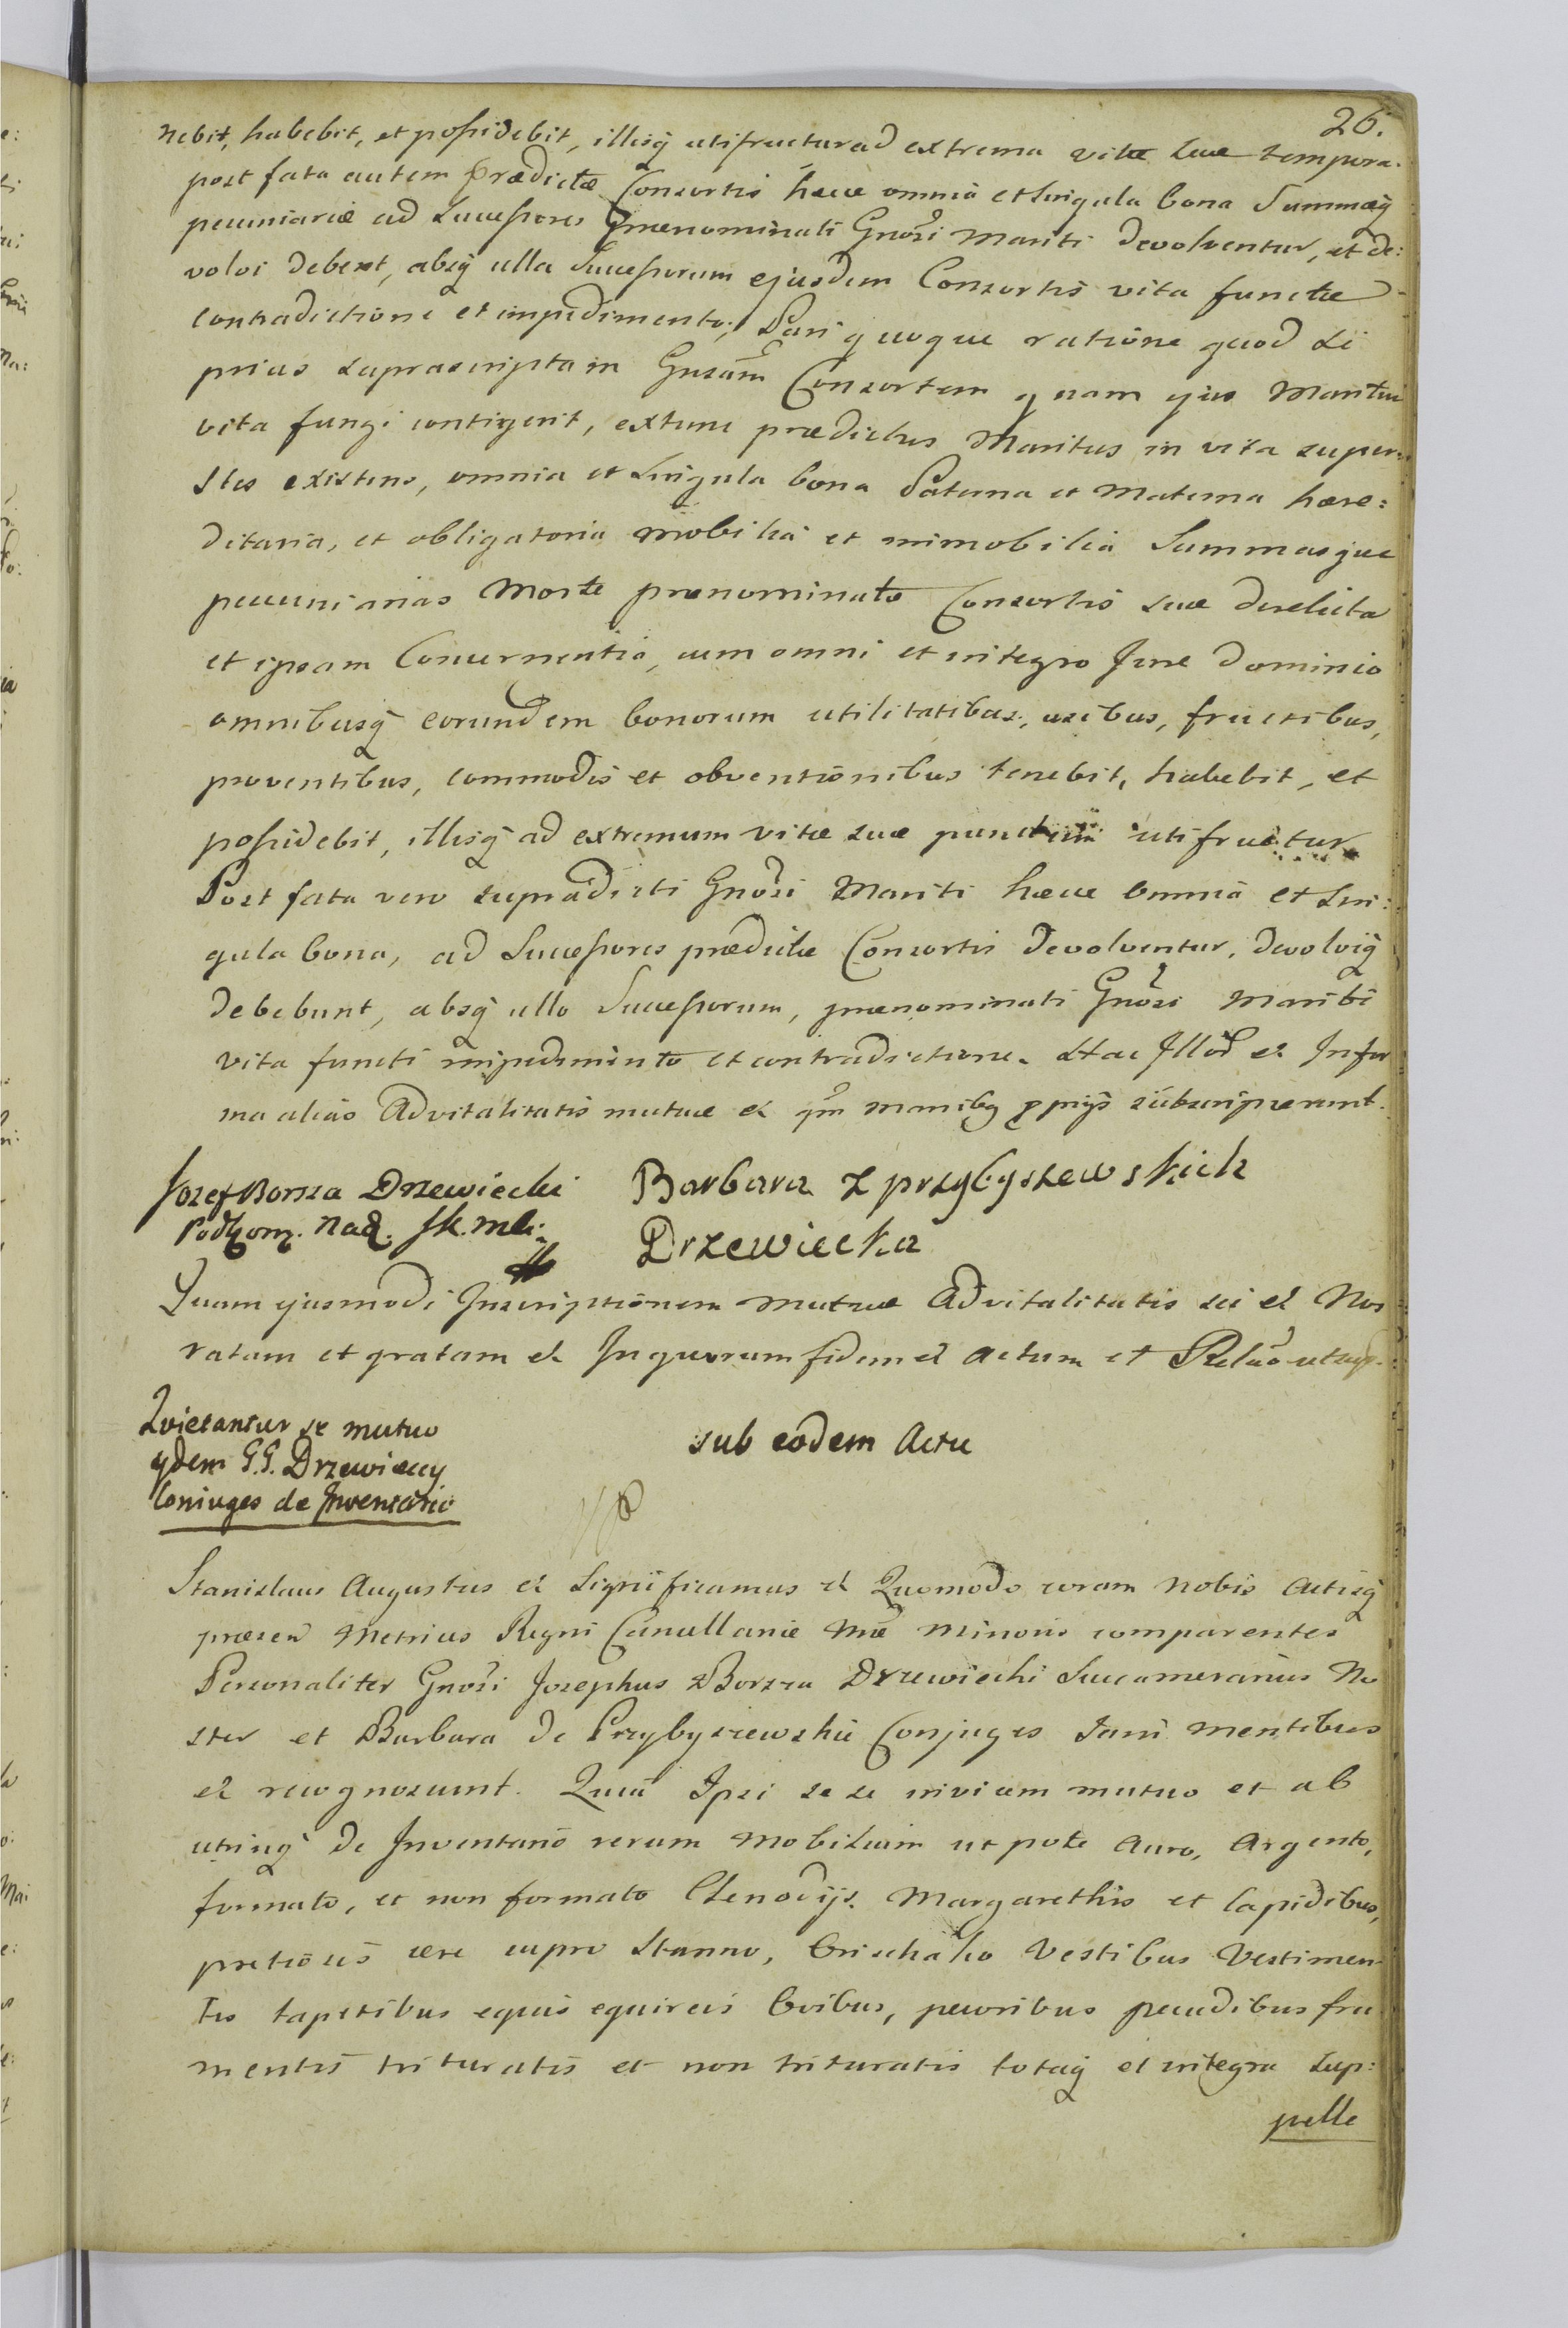 26.
nebit, habebit, et possidebit, illisq utifruetur ad extrema vitæ suæ tempora.
post fata autem prædictæ Consortis hæc omnia et singula bona Summæq
pecuniariæ ad Successores prænominati Gnosi Mariti devolventur, et de:
volvi debent, absq ulla Successorum ejusdem Consortis vita functæ
contradictione et impedimento; Pari quoque ratione quod si
prius suprascriptam Gnsam Consortem quam ejus Maritum
vita fungi contigerit, extunc prædictus Maritus in vita super:
stes existens, omnia et singula bona Paterna et Materna hære:
ditaria, et obligatoria mobilia et immobilia Summasque
pecuniarias Morte prænominatæ Consortis suæ derelicta
et ipsam Concernentia, cum omni et integro Jure dominio
omnibusq eorundem bonorum utilitatibus, usibus, fructibus,
proventibus, commodis et obventionibus tenebit, habebit, et
possidebit, illisq ad extremum vitæ suæ punctum utifruetur
Post fata vero supradicti Gnosi Mariti hæc omnia et sin:
gula bona, ad Successores prædictæ Consortis devolventur, devolviq
debebunt, absq ullo Successorum, prænominati Gnosi Mariti
vita functi impedimento et contradictione. Hac Illõr et Infor
ma alias Advitalitatis mutuæ et qm manibq pprijs subscripserunt.
Jozef Borsza Drzewiecki
Podkom. Nad. Sk. mk.
Barbara z przybyszewskich
Drzewiecka
Quam ejusmodi Inscriptionem mutuæ Advitalitatis sui et Nos
ratam et gratam et In quorum fidem et actum et Relao utsup.
Qvietantur se mutuo
ydem G.G. Drzewieccy
Coniuges de Inventario
sub eodem Actu
Stanislaus Augustus et Significamus et Quomodo coram nobis Actisq
præsen Metrices Regni Cancellariæ Mæ Minoris comparentes
Personaliter Gnosi Josephus Borsza Drzewiecki Succamerarius No
ster et Barbara de Przybyszewskie Conjuges Sani mentibus
et recognoscunt. Quia Ipsi se se invicem mutuo et ab
utrinq de Inventario rerum Mobilium ut pote Auro, Argento,
formato, et non formato Clenodijs. Margarethis et lapidibus,
pretiosis ære cupro Stanno, Orischalco Vestibus Vestimen
tis tapetibus equis equireis Ovibus, pecoribus pecudibus fru
mentis trituratis et non trituratis totaq et integra Sup:
pelle